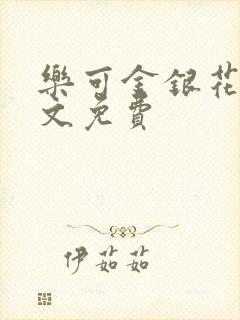 樂可金銀花
文免費
伊茹茹